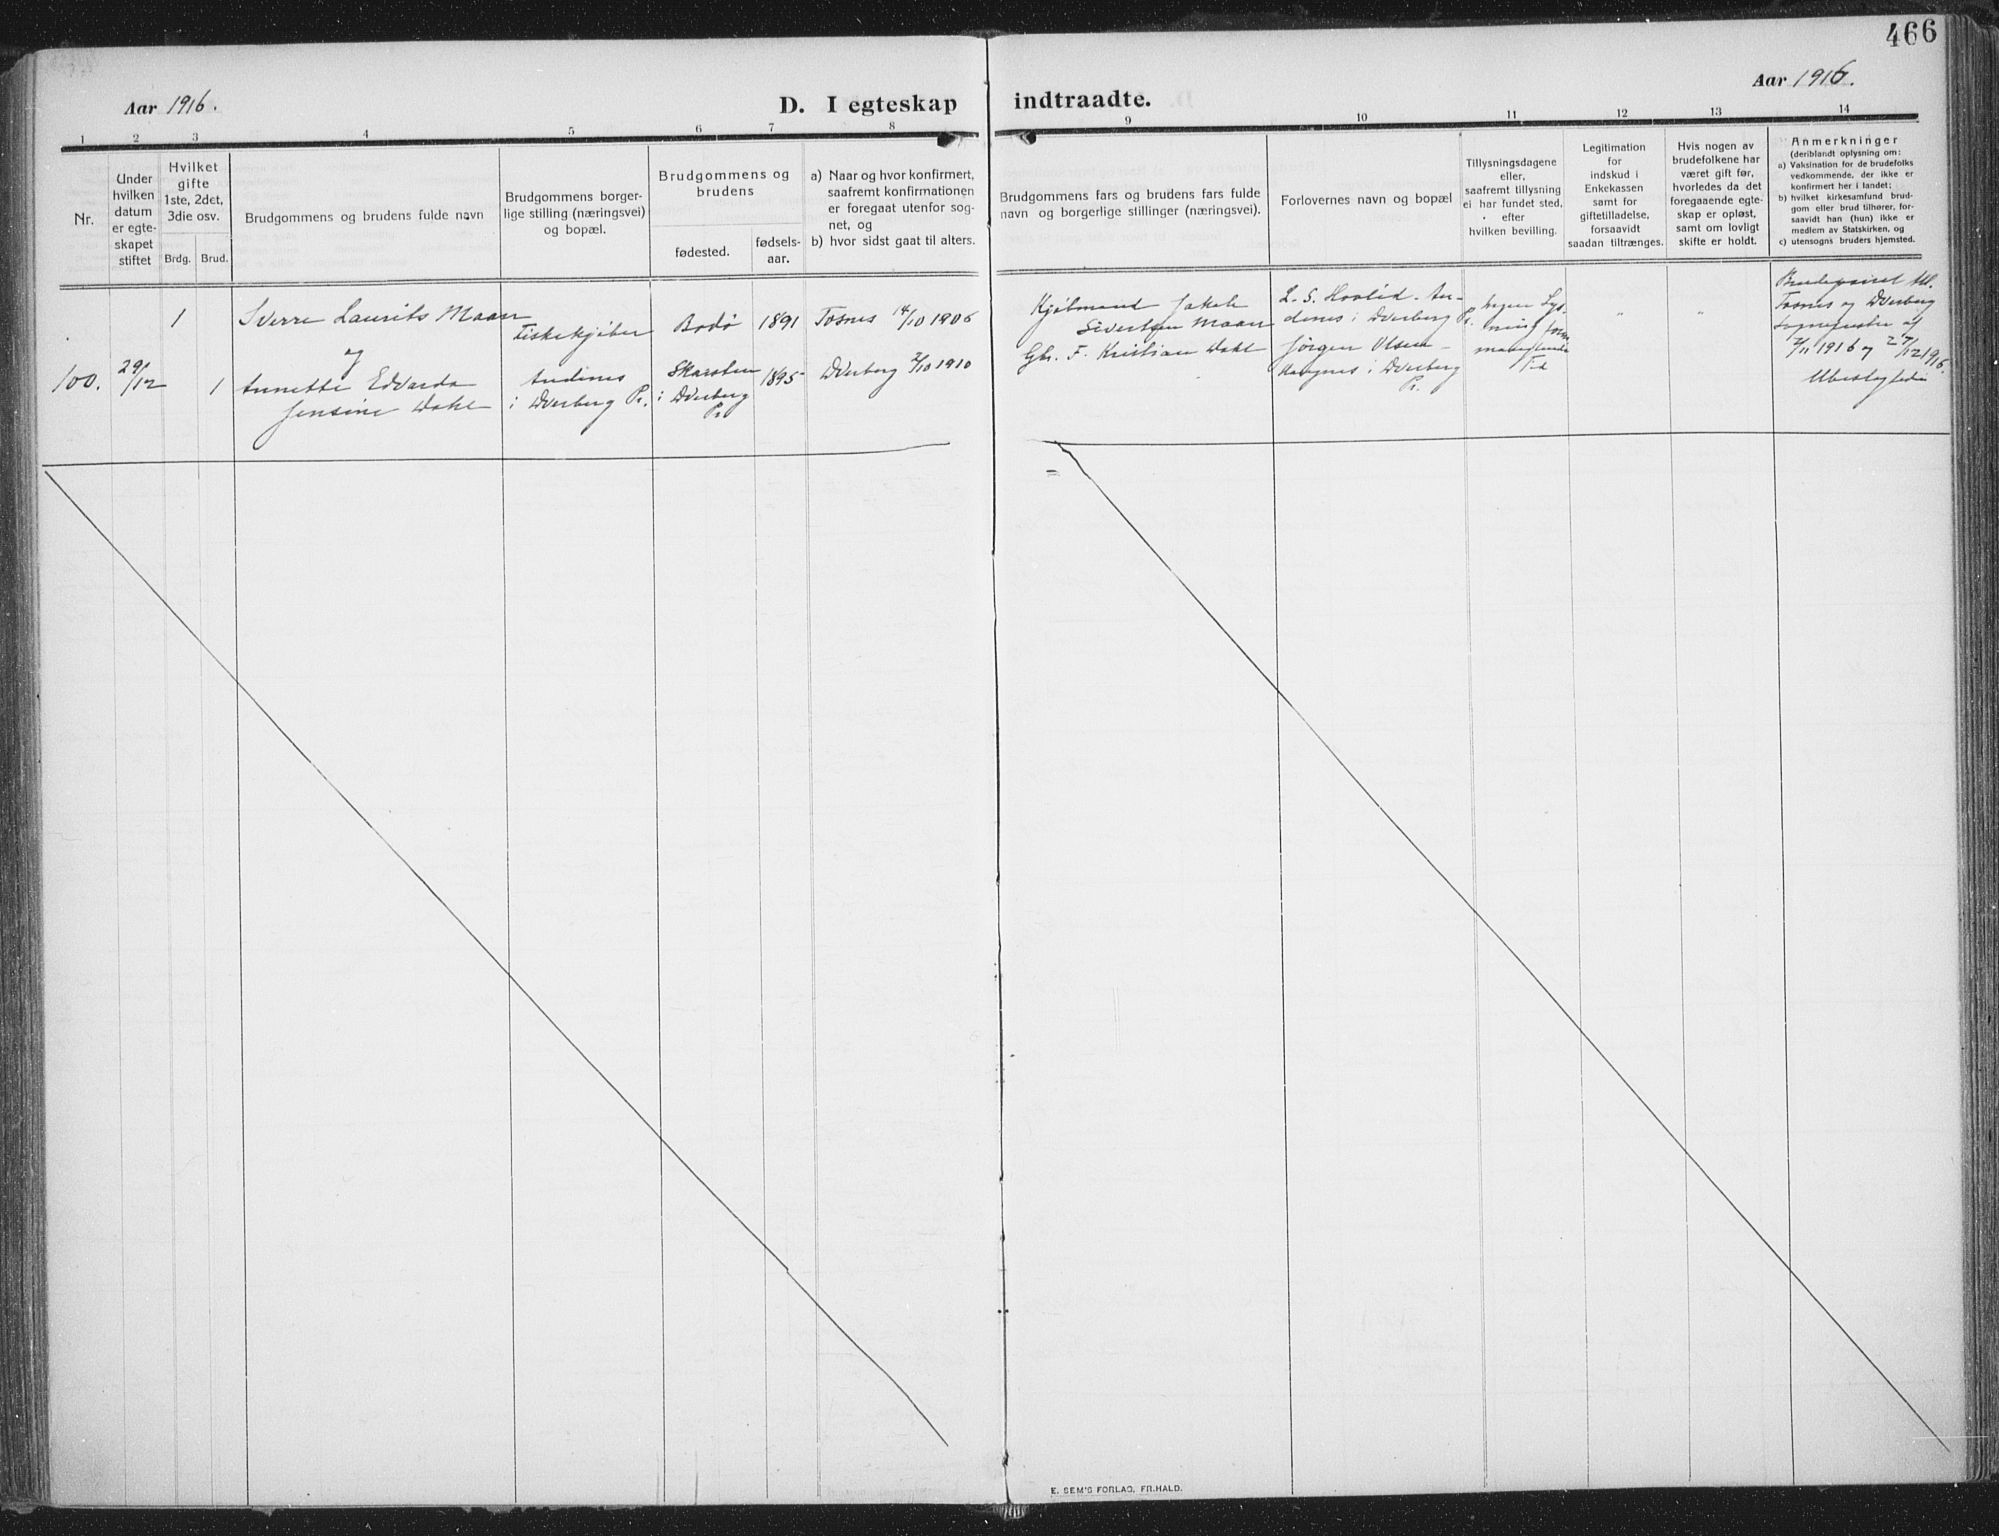 466
Aar 1916.
D. I egteskap indtraadte.
Aar 1916.
1 2 3 4 5 6 7 8 9 10 11 12 13 14
Nr.
Under
hvilken
datum
er egte-
skapet
stiftet
Hvilket
gifte
1ste, 2det,
3die osv.
Brdg. Brud.
Brudgommens og brudens fulde navn
Brudgommens borger-
lige stilling (næringsvei)
og bopæl.
Brudgommens og
brudens
fødested.
fødsels-
aar.
a) Naar og hvor konfirmert,
saafremt konfirmationen
er foregaat utenfor sog-
net, og
b) hvor sidst gaat til alters.
Brudgommens fars og brudens fars fulde
navn og borgerlige stillinger (næringsvei).
Forlovernes navn og bopæl
Tillysningsdagene
eller,
saafremt tillysning
ei har fundet sted,
efter
hvilken bevilling.
Legitimation
for
indskud i
Enkekassen
samt for
giftetilladelse,
forsaavidt
saadan tiltrænges.
Hvis nogen av
brudefolkene har
været gift før,
hvorledes da det
foregaaende egte-
skap er opløst,
samt om lovligt
skifte er holdt.
Anmerkninger
(deriblandt oplysning om:
a) Vaksination for de brudefolks
vedkommende, der ikke er
konfirmert her i landet;
b) hvilket kirkesamfund brud-
gom eller brud tilhører, for-
saavidt han (hun) ikke er
medlem av Statskirken, og
c) utensogns bruders hjemsted.
100.
29/12
1
1
Sverre Laurits Maan
og
Annette Edvarda
Jensine Dahl
Fiskekjøber
Andenes
i Dverberg Pr.
Bodø
Skarsten
i Dverberg
Pr.
1891
1895
Fosnes 14/10 1906
Dverberg 2/10 1910
Kjøbmand Jakob
Sivertsen Maan
Gbr. F. Kristian Dahl
L. S. Hovlid. An-
denes i Dverberg Pr.
Jørgen Olsen
i Dverberg
Pr.
ingen Lys-
ning
" "
Fosnes og Dverberg
1916 og 27/12 1916.
Ubeslegtede
E. SEM'S FORLAG, FR.HALD.